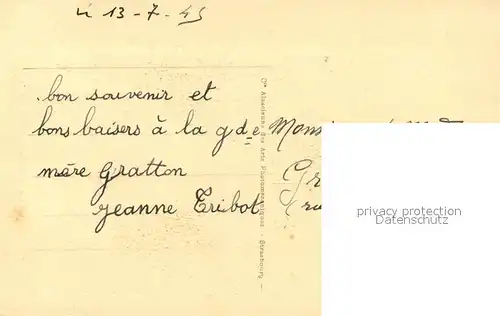 le 13-7-45
bon souvenir et
bons baisers à la gde
mère Gratton
Jeanne Tribot
Monsieur
Cie Alsacienne des Arts Photomécaniques - Strasbourg -
privacy protection
Datenschutz